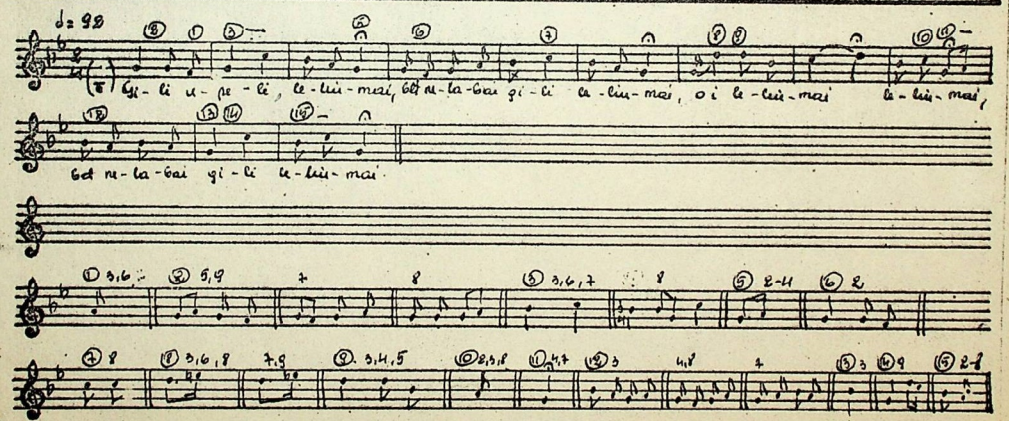 ♩= 92
② ① ③ ⑤ ⑥ ⑦ ⑧ ⑨ ⑩ ⑪
gi-li u-pe-li, le-liu-mai, bet ne-la-bai gi-li le-liu-mai, oi le-liu-mai le-liu-mai,
⑫ ⑬ ⑭ ⑮
bet ne-la-bai gi-li le-liu-mai.
① 3,6 ② 5,9 7 8 ③ 3,6,7 8 ⑤ 2-4 ⑥ 2
⑦ 8 ⑧ 3,6,8 7,9 ⑨ 3,4,5 ⑩ 2,3,8 ⑪ 4,7 ⑫ 3 4,8 7 ⑬ 3 ⑭ 9 ⑮ 2-8